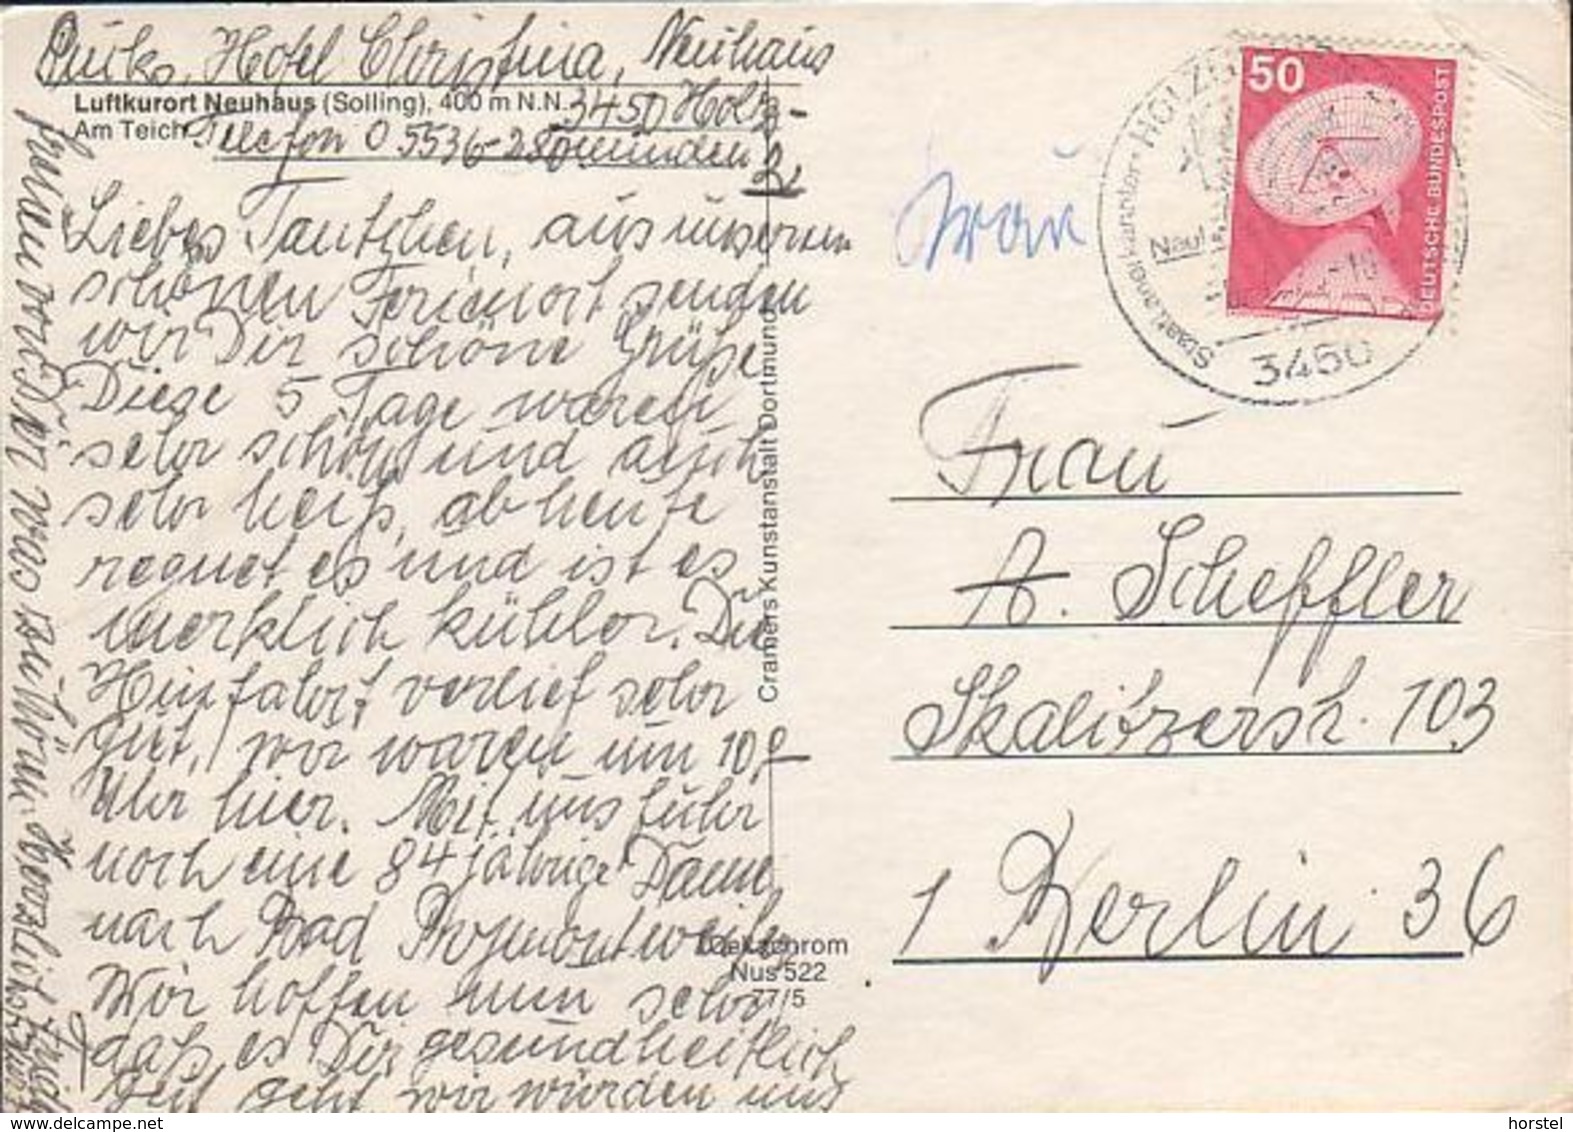 Hotel Christina, Neuhaus
Luftkurort Neuhaus (Solling), 400 m N.N. 3450 Holz-
Am Teich Telefon 05536-280 minden 2
Liebes Tantchen, aus unserem
schönen Ferienort senden
wir Dir schöne Grüße
Diese 5 Tage waren
sehr schön und auch
sehr heiß, ab heute
regnet es und ist es
merklich kühler. Die
Hinfahrt verlief sehr
gut, wir waren um 10
Uhr hier. Mit uns fuhr
noch eine 84 jährige Dame
nach Bad Pyrmont weiter
Wir hoffen nun sehr
daß es Dir gesundheitlich
gut geht wir würden uns
freuen von Dir was zu hören. Herzlichst
Cramers Kunstanstalt Dortmund
Dekachrom
Nus 522
77/5
50
DEUTSCHE BUNDESPOST
3450
Frau
A. Scheffler
Skalitzerstr. 103
1 Berlin 36
horstel